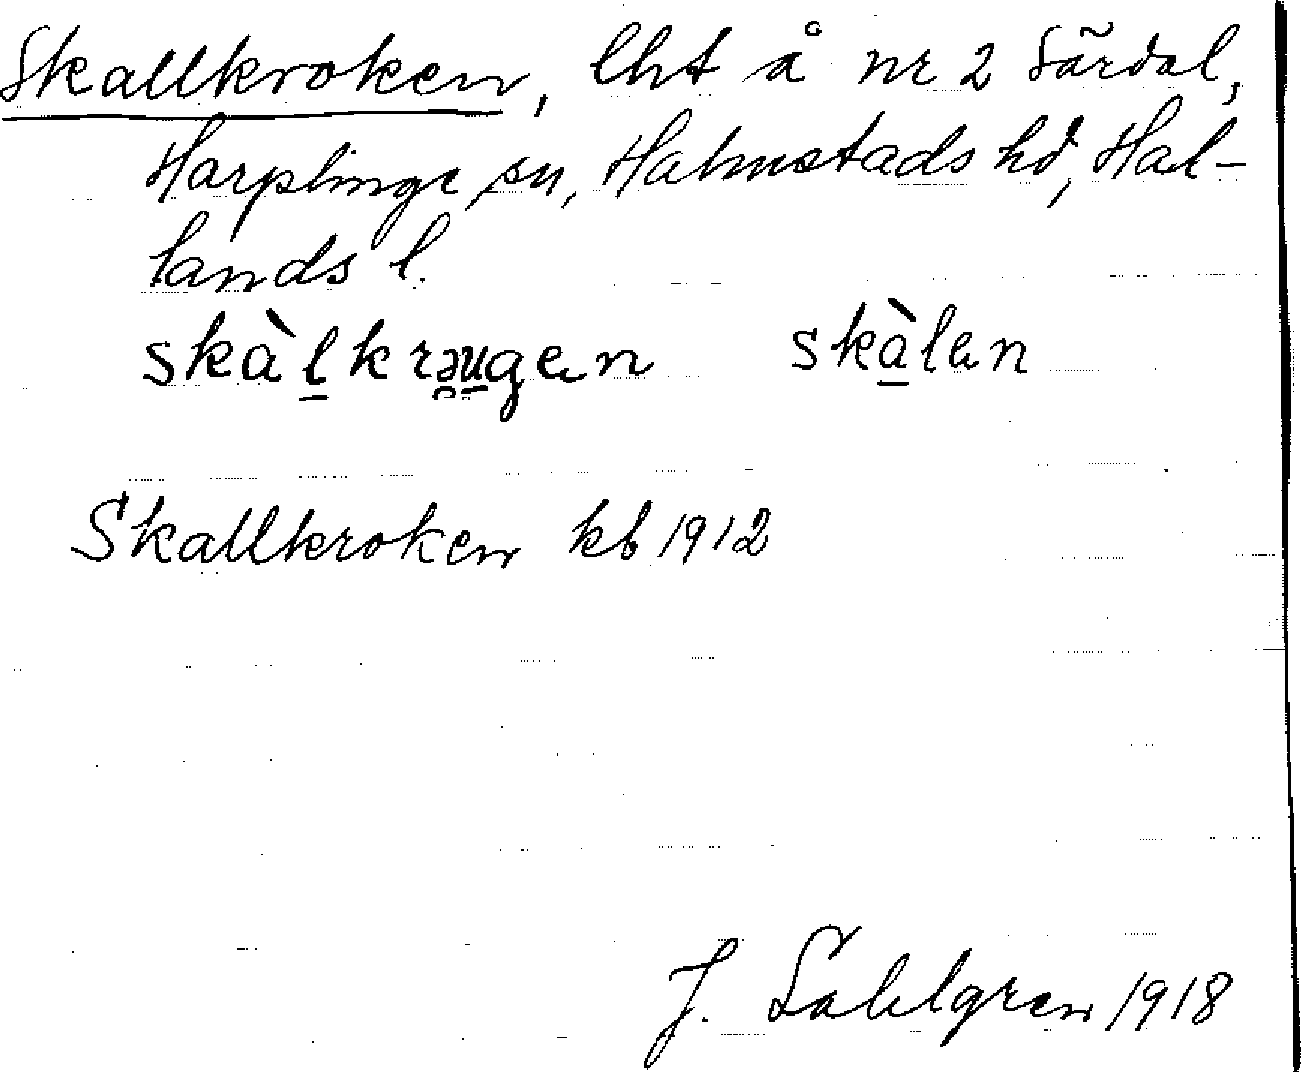 Skallkroken, lht å nr 2 Särdal,
Harplinge sn, Halmstads hd, Hal-
lands l.
skàl̲krə̯u̯gen skà̲len
Skallkroken kb 1912
J. Sahlgren 1918